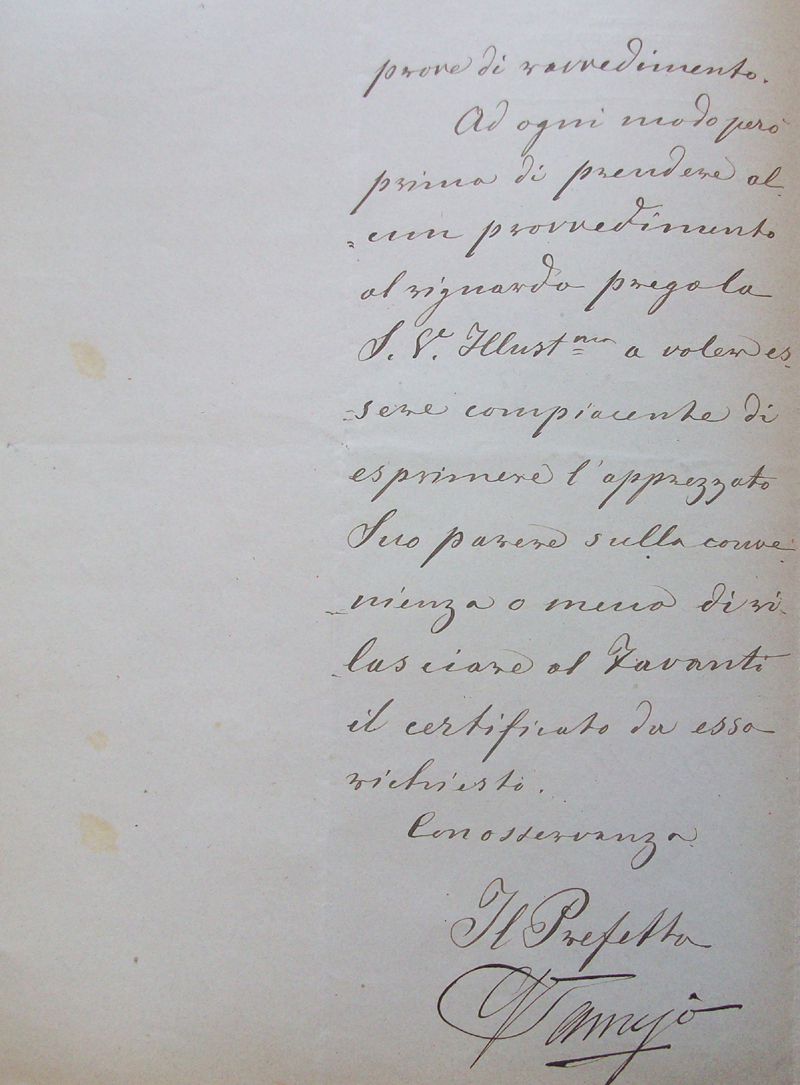 prove di ravvedimento.
Ad ogni modo però
prima di prendere al-
-cun provvedimento
al riguardo prego la
S. V. Illust.ma a voler es-
-sere compiacente di
esprimere l'apprezzato
Suo parere sulla conve-
-nienza o meno di ri-
-lasciare al Tavanti
il certificato da esso
richiesto.
Con osservanza
Il Prefetto